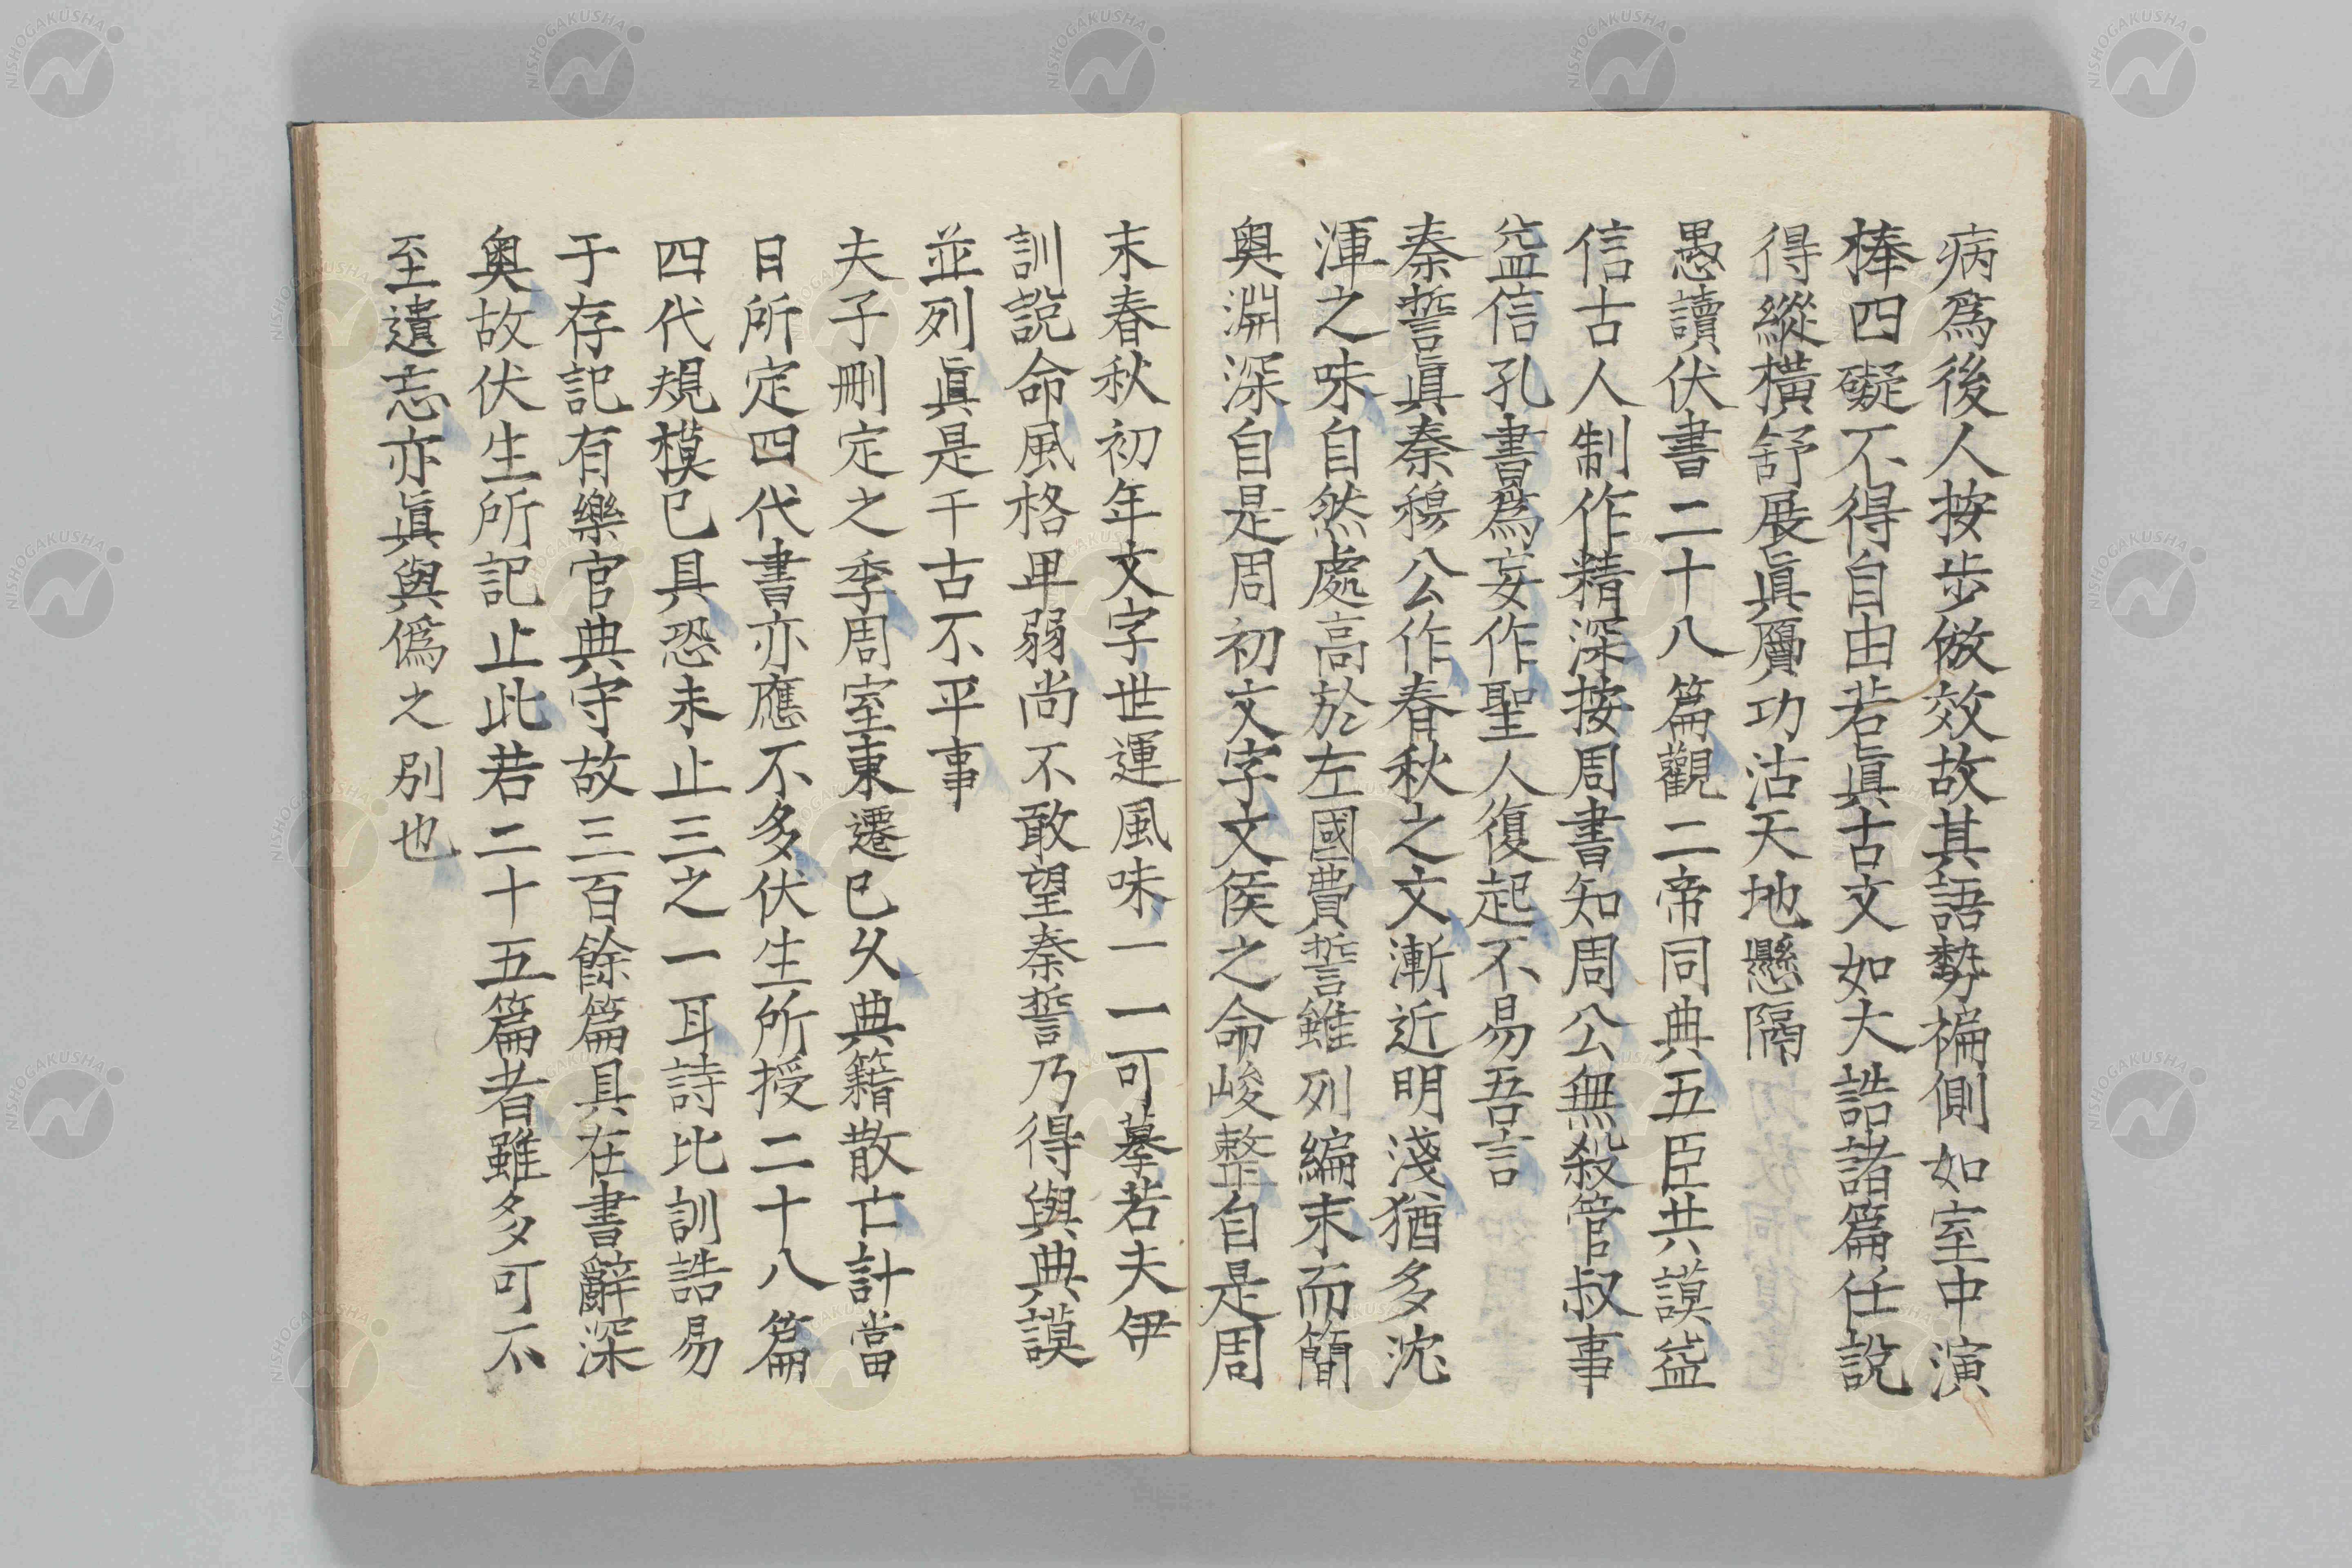 病爲後人按步倣效故其語勢褊側如室中演
棒四礙不得自由若眞古文如大誥諸篇任說
得縱橫舒展眞贗功沽天地懸隔
愚讀伏書二十八篇觀二帝同典五臣共謨益
信古人制作精深按周書知周公無殺管叔事
益信孔書爲妄作聖人復起不易吾言
秦誓眞秦穆公作春秋之文漸近明淺猶多沈
渾之味自然處高於左國費誓雖列編末而簡
奧淵深自是周初文字文侯之命峻整自是周
末春秋初年文字世運風味一一可摹若夫伊
訓說命風格卑弱尚不敢望秦誓乃得與典謨
並列眞是千古不平事
夫子刪定之季周室東遷已久典籍散亡計當
日所定四代書亦應不多伏生所授二十八篇
四代規模已具恐未止三之一耳詩比訓誥易
于存記有樂官典守故三百餘篇具在書辭深
奧故伏生所記止此若二十五篇者雖多可不
至遺忘亦眞與僞之別也
NISHOGAKUSHA